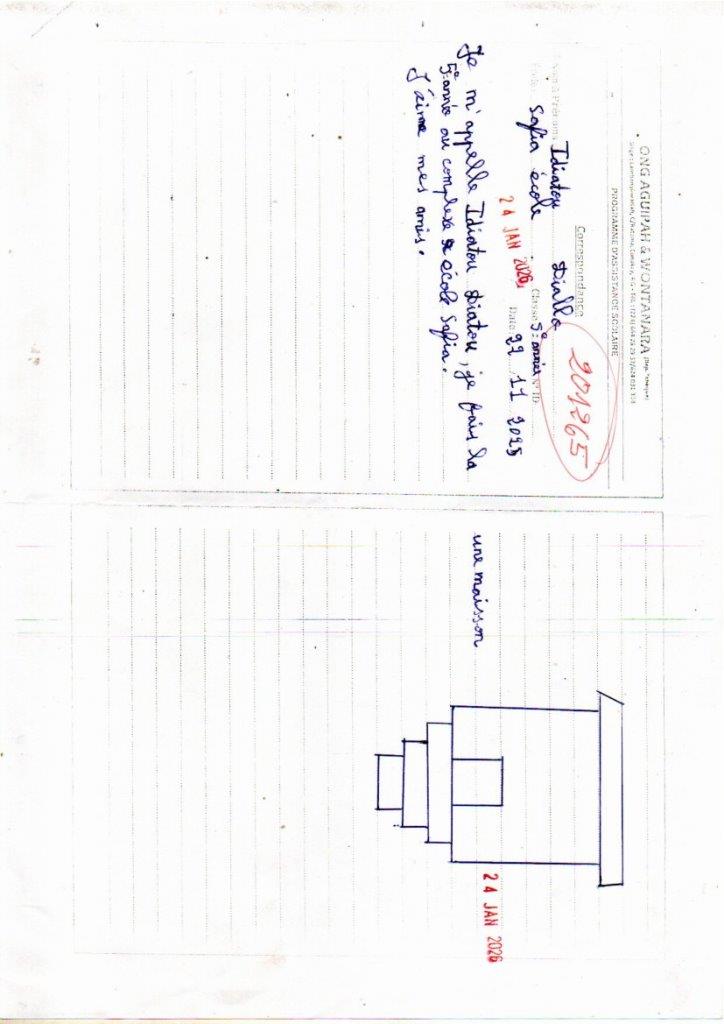 ONG AGUIPAH & WONTANARA
PROGRAMME D'ASSISTANCE SCOLAIRE
Correspondance
201265
Idiatou Diallo
Safia école Classe 5e année N° ID
24 JAN 2026 Date 29 11 2025
Je m'appelle Idiatou Diatou, je fais la
5e année au complexe école Safia.
J'aime mes amis.
une maisson
24 JAN 2026